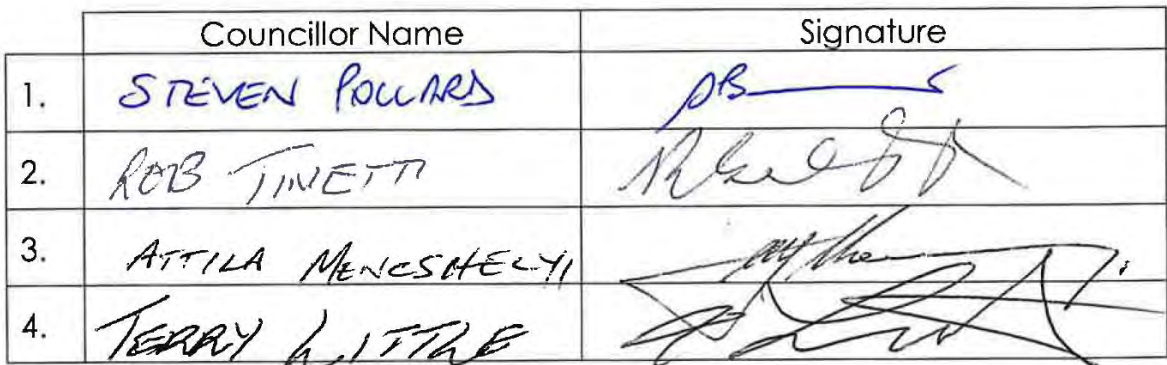 Councillor Name Signature
1. STEVEN POLLARD
2. ROB TINETTI
3. ATTILA MENCSHELYI
4. TERRY LITTLE